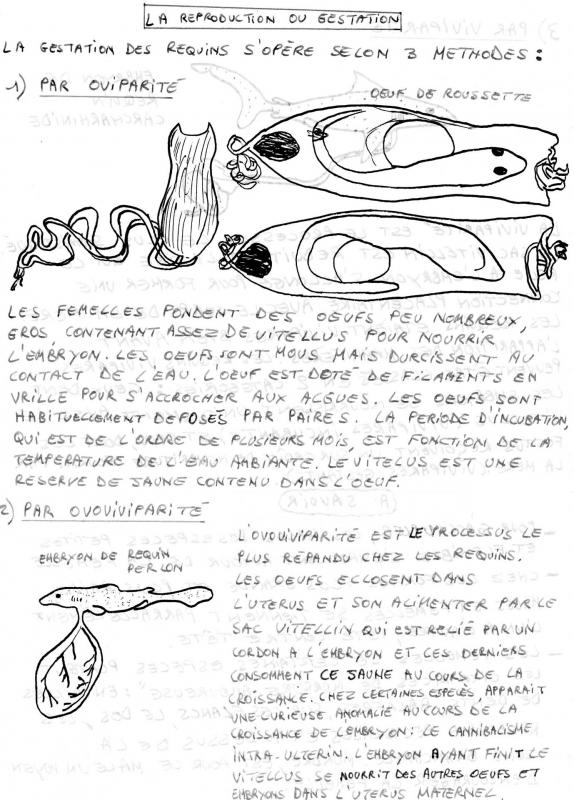 LA REPRODUCTION OU GESTATION
LA GESTATION DES REQUINS S'OPÈRE SELON 3 METHODES :
1) PAR OVIPARITÉ
OEUF DE ROUSSETTE
LES FEMELLES PONDENT DES OEUFS PEU NOMBREUX,
GROS, CONTENANT ASSEZ DE VITELLUS POUR NOURRIR
L'EMBRYON. LES OEUFS SONT MOUS MAIS DURCISSENT AU
CONTACT DE L'EAU. L'OEUF EST DOTÉ DE FILAMENTS EN
VRILLE POUR S'ACCROCHER AUX ALGUES. LES OEUFS SONT
HABITUELLEMENT DEPOSÉS PAR PAIRES. LA PERIODE D'INCUBATION,
QUI EST DE L'ORDRE DE PLUSIEURS MOIS, EST FONCTION DE LA
TEMPERATURE DE L'EAU AMBIANTE. LE VITELUS EST UNE
RESERVE DE JAUNE CONTENU DANS L'OEUF.
2) PAR OVOVIVIPARITÉ
EMBRYON DE REQUIN
PERLON
L'OVOVIVIPARITÉ EST LE PROCESSUS LE
PLUS RÉPANDU CHEZ LES REQUINS.
LES OEUFS ECLOSENT DANS
L'UTERUS ET SON ALIMENTER PAR LE
SAC VITELLIN QUI EST RELIÉ PAR UN
CORDON A L'EMBRYON ET CES DERNIERS
CONSOMMENT CE JAUNE AU COURS DE LA
CROISSANCE. CHEZ CERTAINES ESPECES, APPARAIT
UNE CURIEUSE ANOMALIE AU COURS DE LA
CROISSANCE DE L'EMBRYON : LE CANNIBALISME
INTRA-ULTERIN. L'EMBRYON AYANT FINIT LE
VITELLUS SE NOURRIT DES AUTRES OEUFS ET
EMBRYONS DANS L'UTERUS MATERNEL.